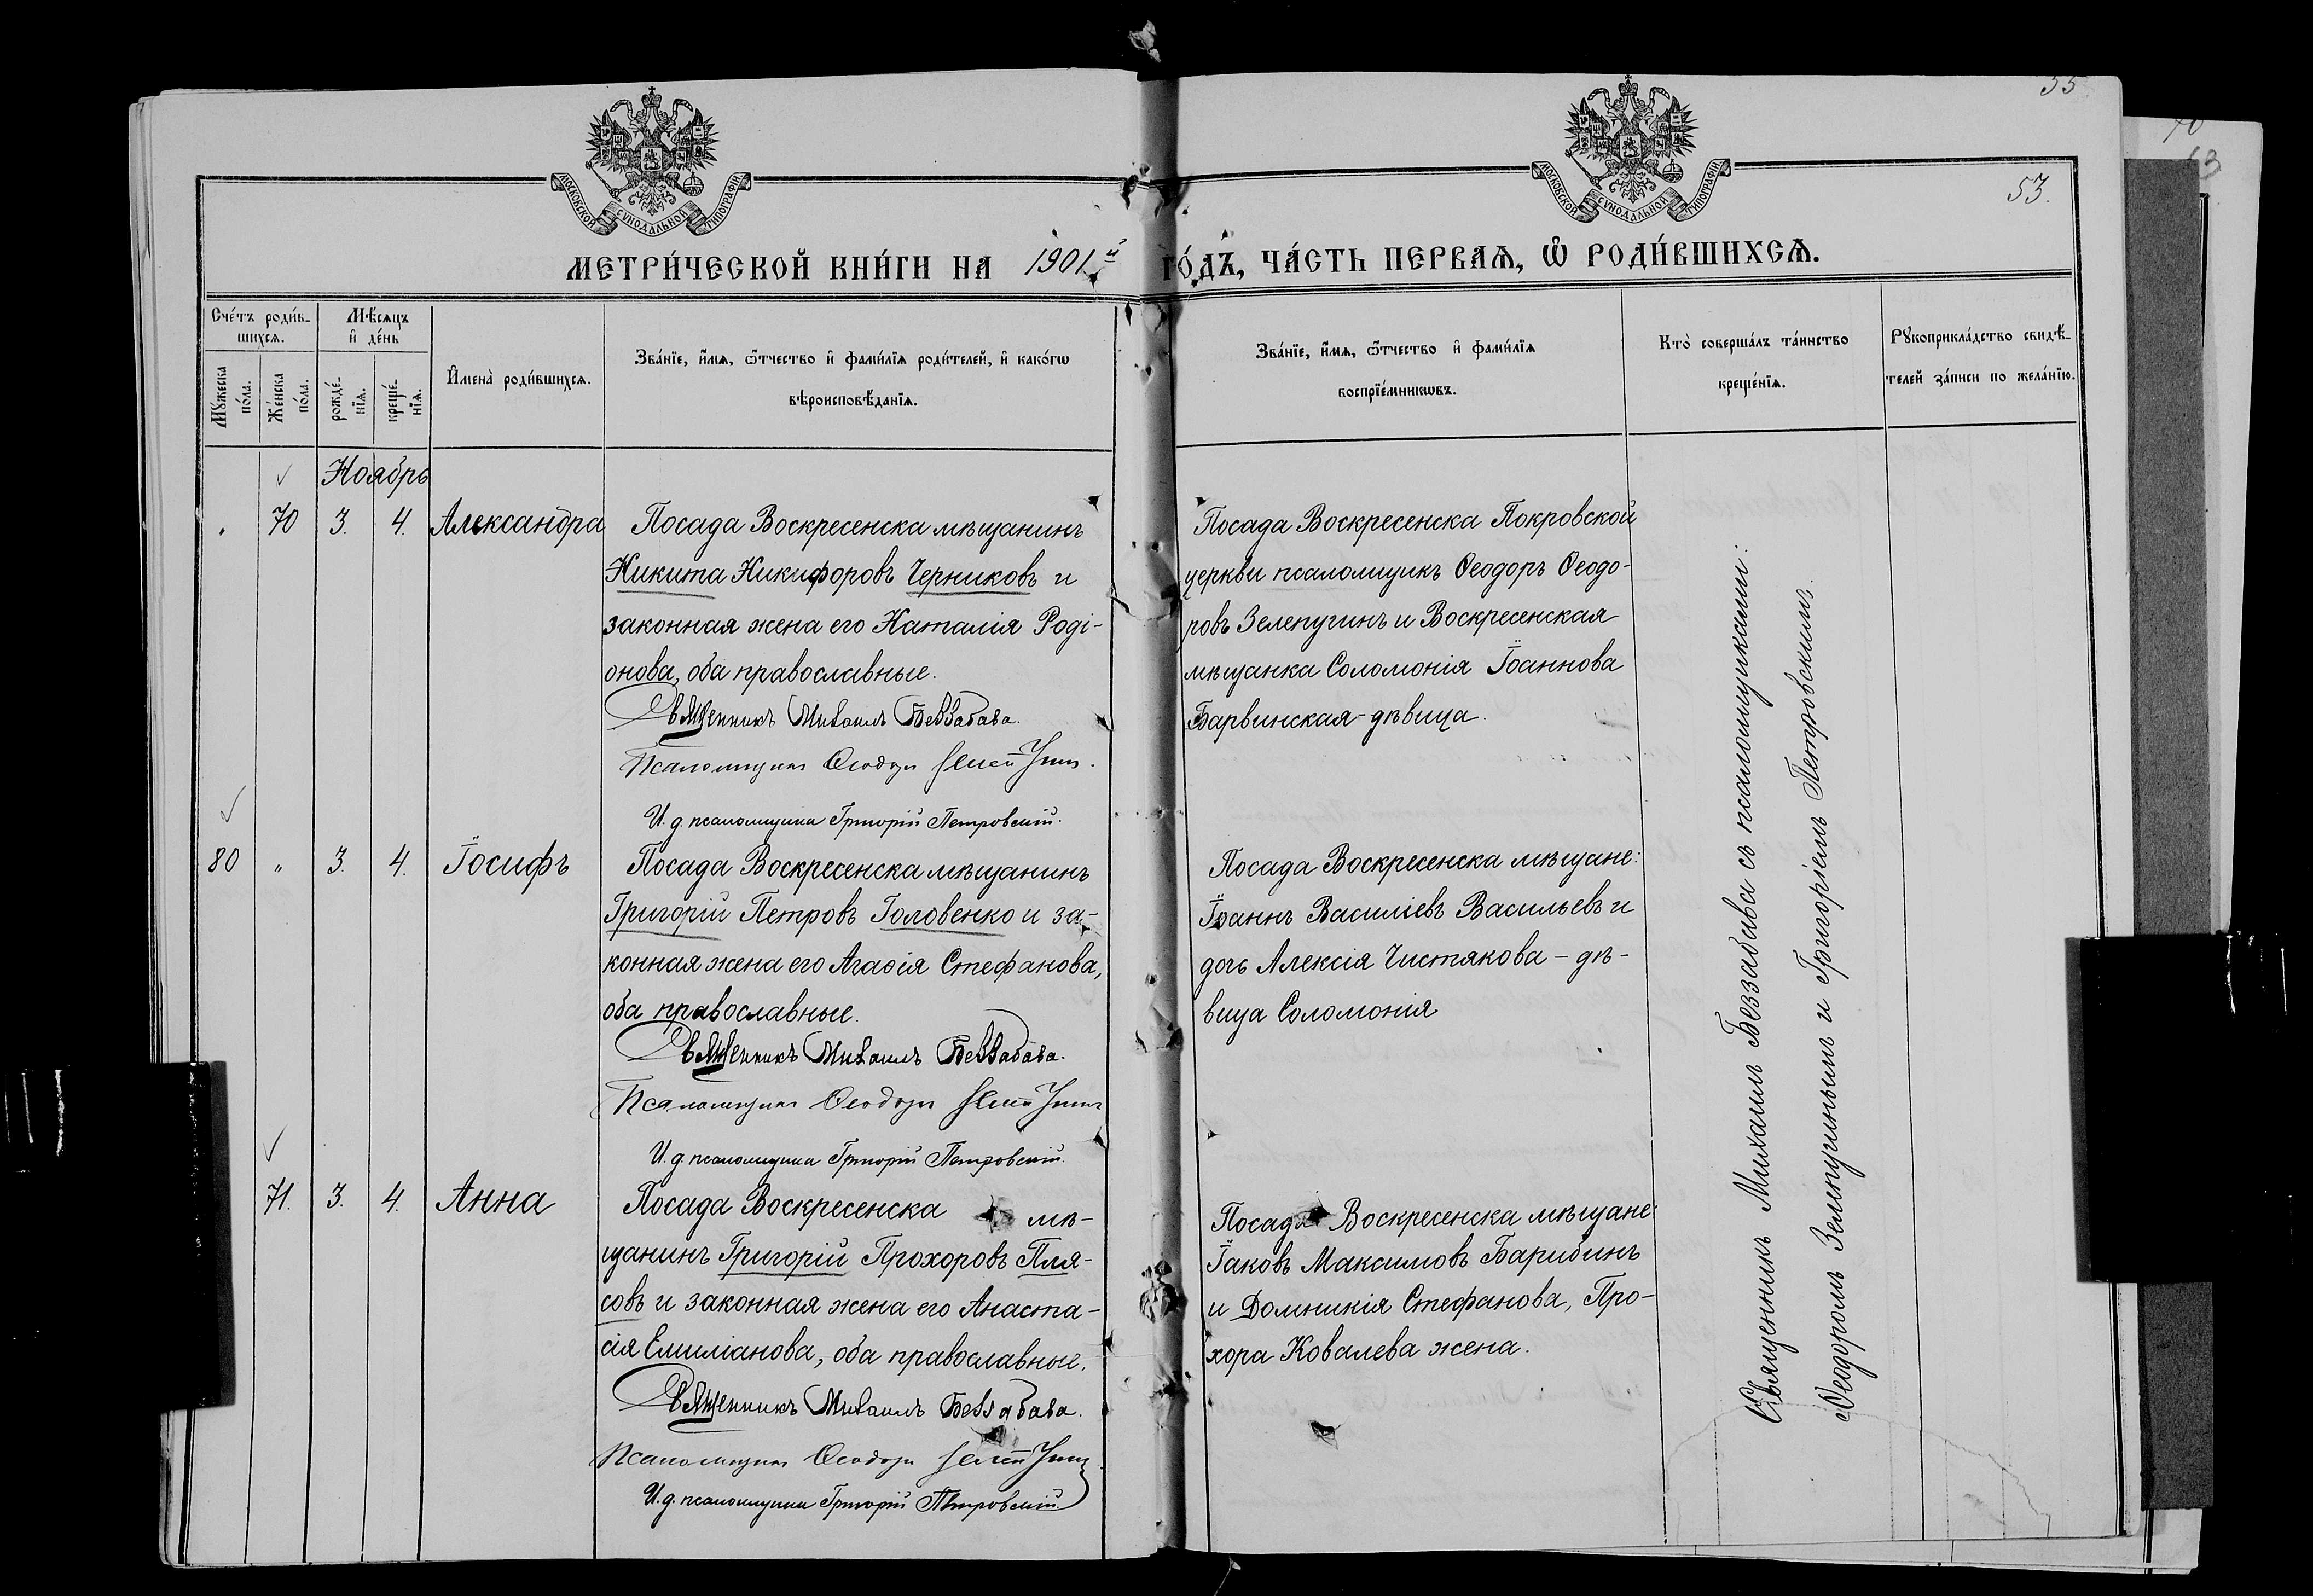 55
53.
МОСКОВСКОЙ СѴНОДАЛЬНОЙ ТИПОГРАФІИ
МОСКОВСКОЙ СѴНОДАЛЬНОЙ ТИПОГРАФІИ
МЕТРИ́ЧЕСКОЙ КНИ́ГИ НА 1901.й ГО́ДЪ, ЧА́СТЬ ПЕРВАѦ, Ѽ РОДИ́ВШИХСѦ.
Сче́тъ роди́в-
шихсѧ.
Мꙋжеска по́ла.
Же́нска по́ла.
Мѣ́сѧцъ
и҆ де́нь
рожде́-
нїѧ.
креще́-
нїѧ.
И҆мена̀ роди́вшихсѧ.
Зва́нїе, и҆́мѧ, ѻ҆́тчество и҆ фами́лїѧ роди́телей, и҆ како́гѡ
вѣроисповѣ́данїѧ.
Зва́нїе, и҆́мѧ, ѻ҆́тчество и҆ фами́лїѧ
воспрїе́мникѡвъ.
Кто̀ соверша́лъ та́инство
креще́нїѧ.
Рꙋкоприкла́дство свидѣ́-
телей за́писи по жела́нїю.
Ноябрь
70 3. 4. Александра
Посада Воскресенска мѣщанинъ
Никита Никифоровъ Черниковъ и
законная жена его Наталія Роді-
онова, оба православные.
Священникъ Михаилъ Беззабава.
Псаломщикъ Ѳеодоръ Зелепугинъ.
И. д. псаломщика Григорій Петровскій.
Посада Воскресенска Покровской
церкви псаломщикъ Ѳеодоръ Ѳеодо-
ровъ Зелепугинъ и Воскресенская
мѣщанка Соломонія Іоаннова
Барвинская - дѣвица.
80 " 3. 4. Іосифъ
Посада Воскресенска мѣщанинъ
Григорій Петровъ Головенко и за-
конная жена его Агаѳія Стефанова,
оба православные.
Священникъ Михаилъ Беззабава.
Псаломщикъ Ѳеодоръ Зелепугинъ
И. д. псаломщика Григорій Петровскій.
Посада Воскресенска мѣщане:
Іоаннъ Василіевъ Васильевъ и
дочь Алексія Чистякова – дѣ-
вица Соломонія
71. 3. 4. Анна
Посада Воскресенска мѣ-
щанинъ Григорій Прохоровъ Пля-
совъ и законная жена его Анаста-
сія Емиліанова, оба православные.
Священникъ Михаилъ Беззабава.
Псаломщикъ Ѳеодоръ Зелепугинъ
И. д. псаломщика Григорій Петровскій
Посада Воскресенска мѣщане:
Іаковъ Максимовъ Барибинъ
и Домникія Стефанова, Про-
хора Ковалева жена.
Священникъ Михаилъ Беззабава съ псаломщиками:
Ѳеодоромъ Зелепугинымъ и Григоріемъ Петровскимъ.